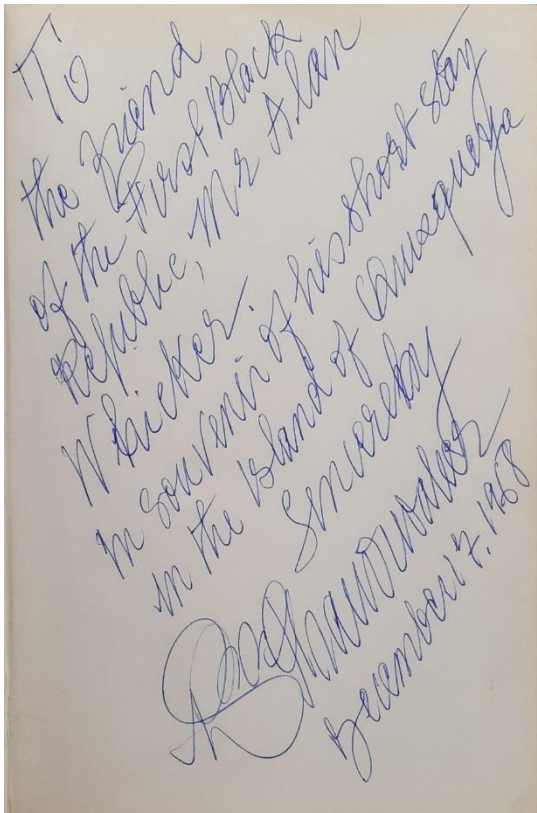 To
the Friend
of the First Black
Republic, Mr Alan
Whicker.
In souvenir of his short stay
in the island of Quisqueya
Sincerely
December 17, 1968